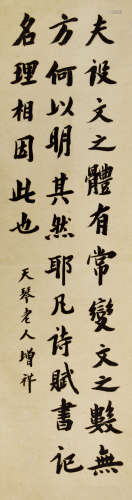 夫設文之體有常變文之數無
方何以明其然耶凡詩賦書記
名理相因此也
天琴老人增祥